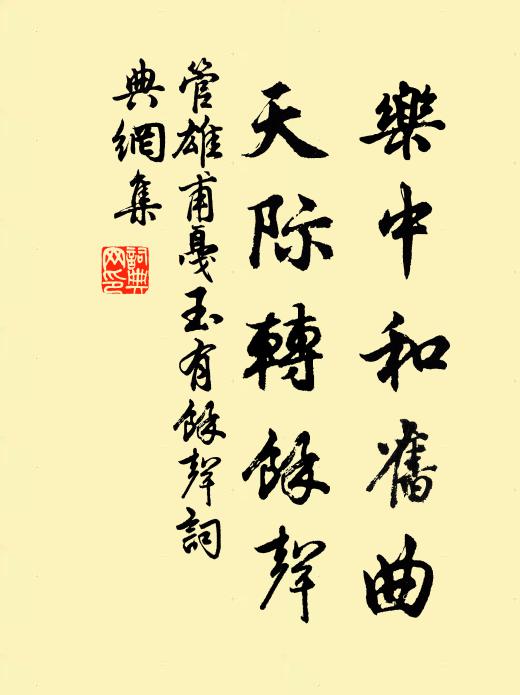 樂中和舊曲
天际轉餘聲
管雄甫戛玉有餘聲詞
典網集
詞典网印